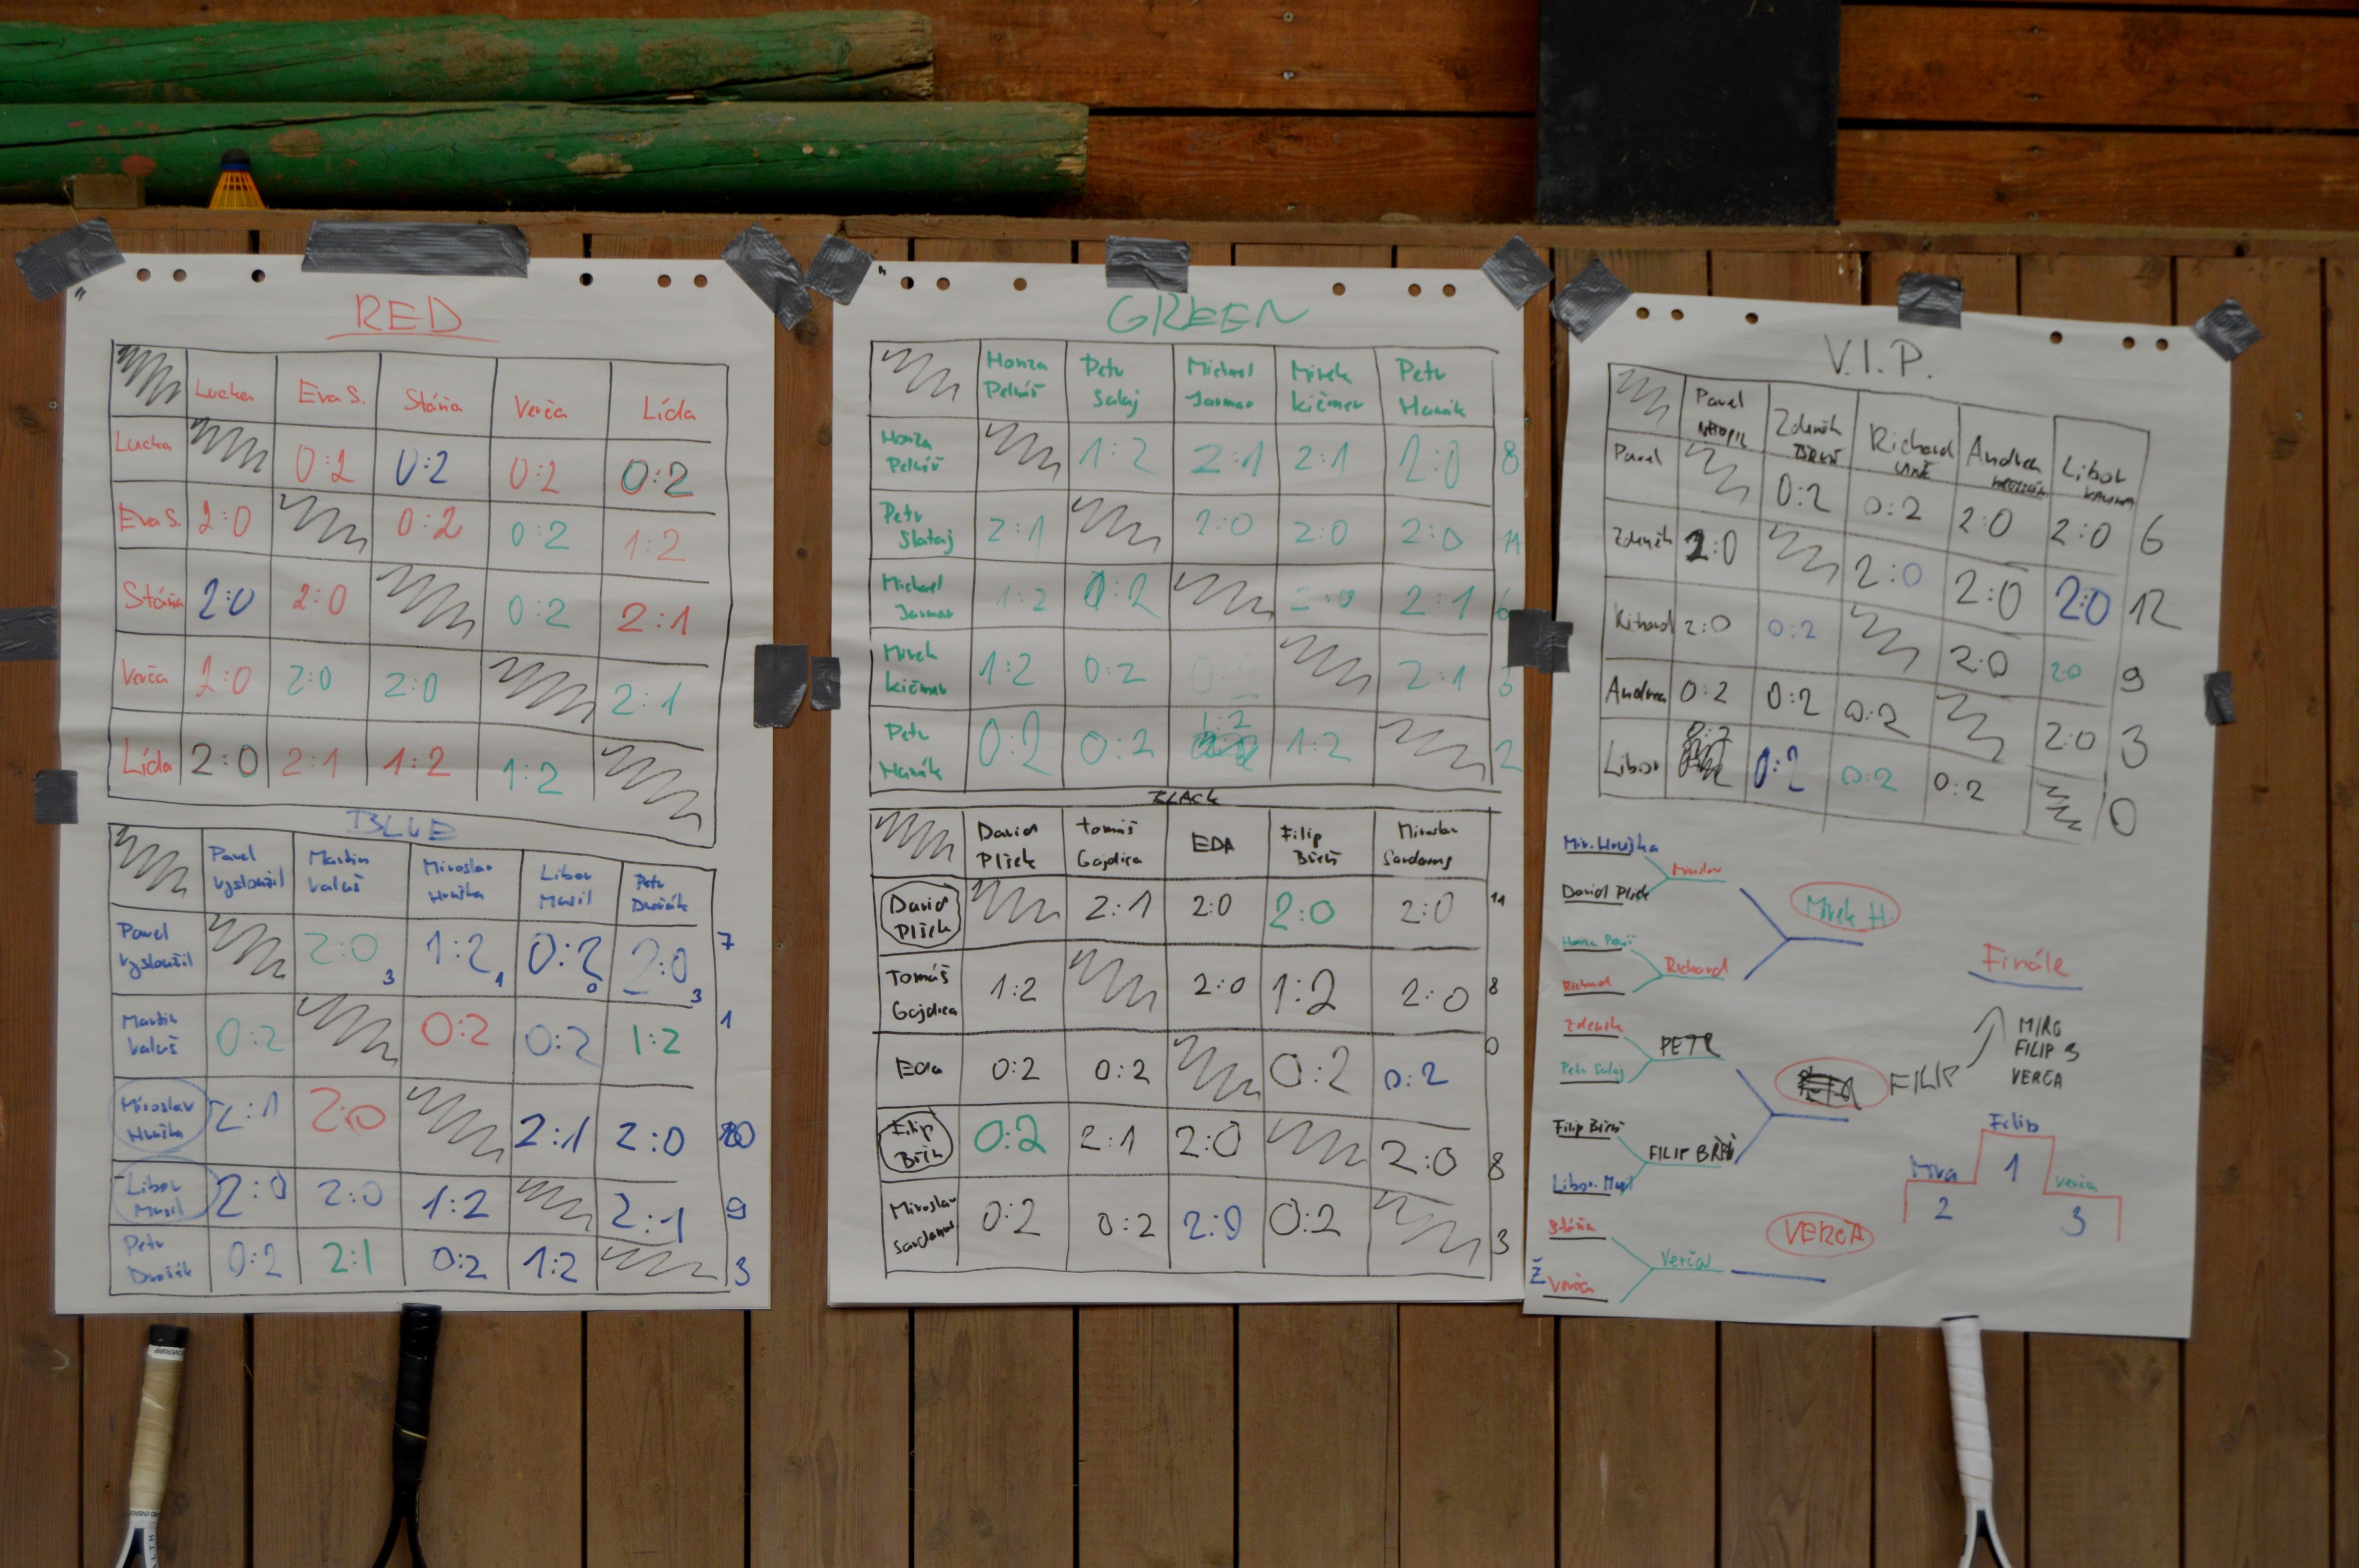 RED
Lucka Eva S. Stáňa Verča Lída
Lucka 0:2 0:2 0:2 0:2
Eva S. 2:0 0:2 0:2 1:2
Stáňa 2:0 2:0 0:2 2:1
Verča 2:0 2:0 2:0 2:1
Lída 2:0 2:1 1:2 1:2
BLUE
Pavel Martin Miroslav Libor Petr
Vysloužil Valuš Hruška Musil Dvořák
Pavel
Vysloužil 2:0 3 1:2 1 0:2 0 2:0 3 7
Martin
Valuš 0:2 0:2 0:2 1:2 1
Miroslav
Hruška 2:1 2:0 2:1 2:0 10
Libor
Musil 2:0 2:0 1:2 2:1 9
Petr
Dvořák 0:2 2:1 0:2 1:2 3
GREEN
Honza Petr Michael Mirek Petr
Pelnář Salaj Jarmar Kičmer Hanák
Honza
1:2 2:1 2:1 2:0 8
Petr
2:1 2:0 2:0 2:0 11
Michael
Jarmar 1:2 0:2 2:0 2:1 6
Mirek
Kičmer 1:2 0:2 2:1 3
Petr
Hanák 0:2 0:2 1:2 1:2 2
BLACK
David Tomáš EDA Filip Miroslav
Plšek Gajdica Břeň
David
Plšek 2:1 2:0 2:0 2:0 11
Tomáš
Gajdica 1:2 2:0 1:2 2:0 8
Eda 0:2 0:2 0:2 0:2 0
Filip
0:2 2:1 2:0 2:0 8
Miroslav
0:2 0:2 2:0 0:2 3
V.I.P.
Pavel Zdeněk Richard Andrea Libor
Pavel 0:2 0:2 2:0 2:0 6
Zdeněk 2:0 2:0 2:0 2:0 12
Richard 2:0 0:2 2:0 2:0 9
Andrea 0:2 0:2 0:2 2:0 3
Libor 0:2 0:2 0:2 0:2 0
Mir. Hruška
David Plšek
Miroslav
Mirek H.
Honza
Richard
Richard
Finále
MIRO
FILIP
VERČA
Zdeněk
Petr Salaj
PETR
FILIP
Filip Břeň
Libor Musil
FILIP BŘEŇ
Stáňa
Ž Verča
Verča
VERČA
Filip
1
2
Verča
3